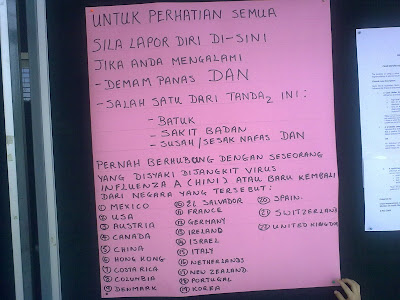 UNTUK PERHATIAN SEMUA
SILA LAPOR DIRI DI-SINI
JIKA ANDA MENGALAMI
- DEMAM PANAS DAN
- SALAH SATU DARI TANDA2 INI:
- BATUK
- SAKIT BADAN
- SUSAH/SESAK NAFAS DAN
PERNAH BERHUBUNG DENGAN SESEORANG
YANG DISYAKI DIJANGKIT VIRUS
INFLUENZA A (H1N1) ATAU BARU KEMBALI
DARI NEGARA YANG TERSEBUT:
① MEXICO
② USA
③ AUSTRIA
④ CANADA
⑤ CHINA
⑥ HONG KONG
⑦ COSTA RICA
⑧ COLUMBIA
⑨ DENMARK
⑩ EL SALVADOR
⑪ FRANCE
⑫ GERMANY
⑬ IRELAND
⑭ ISRAEL
⑮ ITALY
⑯ NETHERLANDS
⑰ NEW ZEALAND
⑱ PORTUGAL
⑲ KOREA
⑳ SPAIN
㉑ SWITZERLAND
㉒ UNITED KINGDOM